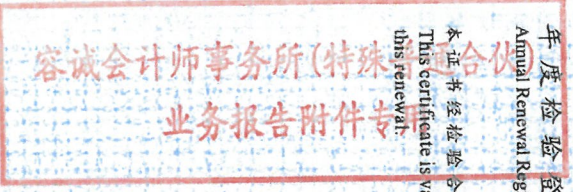 容诚会计师事务所(特殊普通合伙)
业务报告附件专用
年度检验登
Annual Renewal Reg
本证书经检验合
This certificate is va
this renewal.